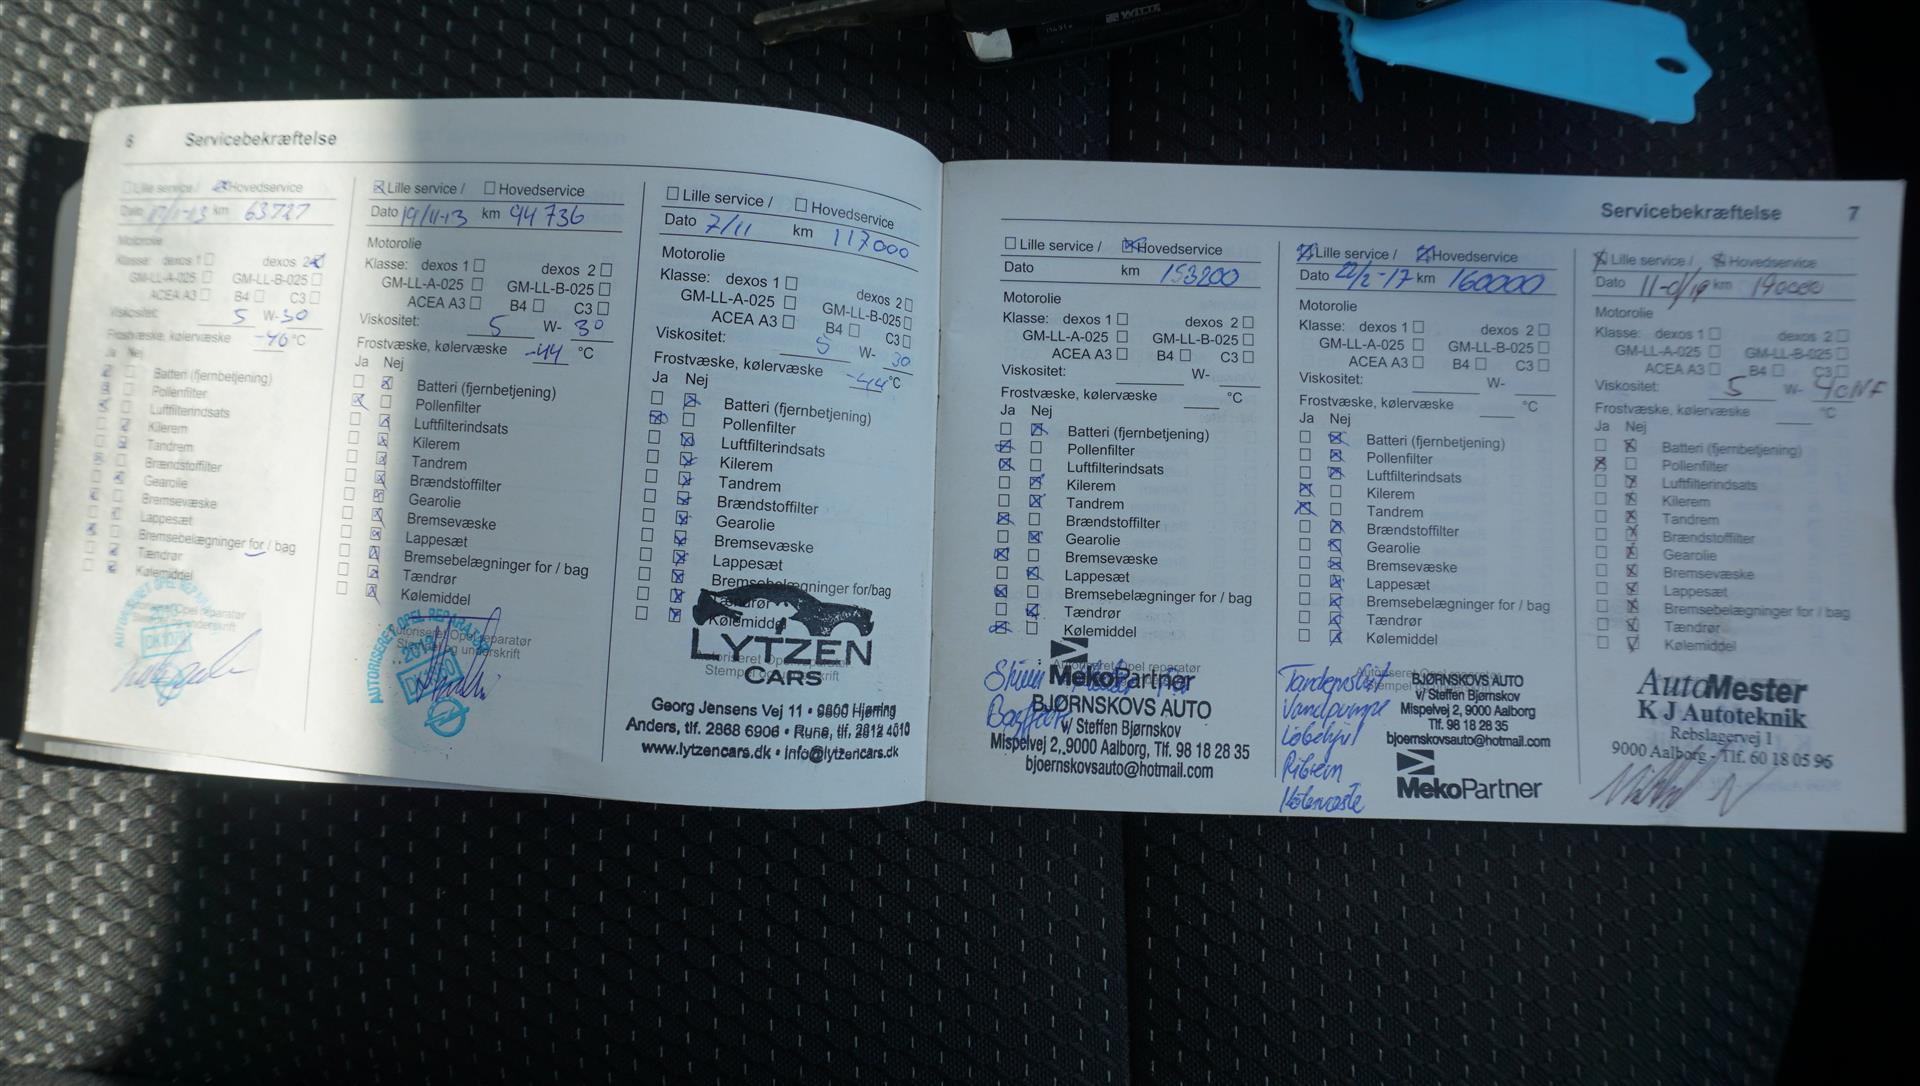 WITTE
6 Servicebekræftelse
Lille service / Hovedservice
Dato 17/1-13 km 63727
Motorolie
Klasse: dexos 1 dexos 2
GM-LL-A-025 GM-LL-B-025
ACEA A3 B4 C3
Viskositet: 5 W- 30
Frostvæske, kølervæske -46 °C
Ja Nej
Batteri (fjernbetjening)
Pollenfilter
Luftfilterindsats
Kilerem
Tandrem
Brændstoffilter
Gearolie
Bremsevæske
Lappesæt
Bremsebelægninger for / bag
Tændrør
Kølemiddel
Autoriseret Opel reparatør
Stempel og underskrift
Lille service / Hovedservice
Dato 19/11-13 km 94736
Motorolie
Klasse: dexos 1 dexos 2
GM-LL-A-025 GM-LL-B-025
ACEA A3 B4 C3
Viskositet: 5 W- 30
Frostvæske, kølervæske -44 °C
Ja Nej
Batteri (fjernbetjening)
Pollenfilter
Luftfilterindsats
Kilerem
Tandrem
Brændstoffilter
Gearolie
Bremsevæske
Lappesæt
Bremsebelægninger for / bag
Tændrør
Kølemiddel
AUTORISERET OPEL REPARATØR
Autoriseret Opel reparatør
Stempel og underskrift
Lille service / Hovedservice
Dato 7/11 km 117000
Motorolie
Klasse: dexos 1 dexos 2
GM-LL-A-025 GM-LL-B-025
ACEA A3 B4 C3
Viskositet: 5 W- 30
Frostvæske, kølervæske -44 °C
Ja Nej
Batteri (fjernbetjening)
Pollenfilter
Luftfilterindsats
Kilerem
Tandrem
Brændstoffilter
Gearolie
Bremsevæske
Lappesæt
Bremsebelægninger for/bag
Tændrør
Kølemiddel
LYTZEN
CARS
Georg Jensens Vej 11 • 9800 Hjørring
Anders, tlf. 2868 6906 • Rune, tlf. 2812 4010
www.lytzencars.dk • info@lytzencars.dk
Servicebekræftelse 7
Lille service / Hovedservice
Dato km 153200
Motorolie
Klasse: dexos 1 dexos 2
GM-LL-A-025 GM-LL-B-025
ACEA A3 B4 C3
Viskositet: W-
Frostvæske, kølervæske °C
Ja Nej
Batteri (fjernbetjening)
Pollenfilter
Luftfilterindsats
Kilerem
Tandrem
Brændstoffilter
Gearolie
Bremsevæske
Lappesæt
Bremsebelægninger for / bag
Tændrør
Kølemiddel
Autoriseret Opel reparatør
MekoPartner
BJØRNSKOVS AUTO
v/ Steffen Bjørnskov
Mispelvej 2, 9000 Aalborg, Tlf. 98 18 28 35
bjoernskovsauto@hotmail.com
Lille service / Hovedservice
Dato 22/2-17 km 160000
Motorolie
Klasse: dexos 1 dexos 2
GM-LL-A-025 GM-LL-B-025
ACEA A3 B4 C3
Viskositet: W-
Frostvæske, kølervæske °C
Ja Nej
Batteri (fjernbetjening)
Pollenfilter
Luftfilterindsats
Kilerem
Tandrem
Brændstoffilter
Gearolie
Bremsevæske
Lappesæt
Bremsebelægninger for / bag
Tændrør
Kølemiddel
Vandpumpe
Løbehjul
Kølervæske
BJØRNSKOVS AUTO
v/ Steffen Bjørnskov
Mispelvej 2, 9000 Aalborg
Tlf. 98 18 28 35
bjoernskovsauto@hotmail.com
MekoPartner
Lille service / Hovedservice
Dato km 190000
Motorolie
Klasse: dexos 1 dexos 2
GM-LL-A-025 GM-LL-B-025
ACEA A3 B4 C3
Viskositet: 5 W- 40
Frostvæske, kølervæske °C
Ja Nej
Batteri (fjernbetjening)
Pollenfilter
Luftfilterindsats
Kilerem
Tandrem
Brændstoffilter
Gearolie
Bremsevæske
Lappesæt
Bremsebelægninger for / bag
Tændrør
Kølemiddel
AutoMester
K J Autoteknik
Rebslagervej 1
9000 Aalborg - Tlf. 60 18 05 96